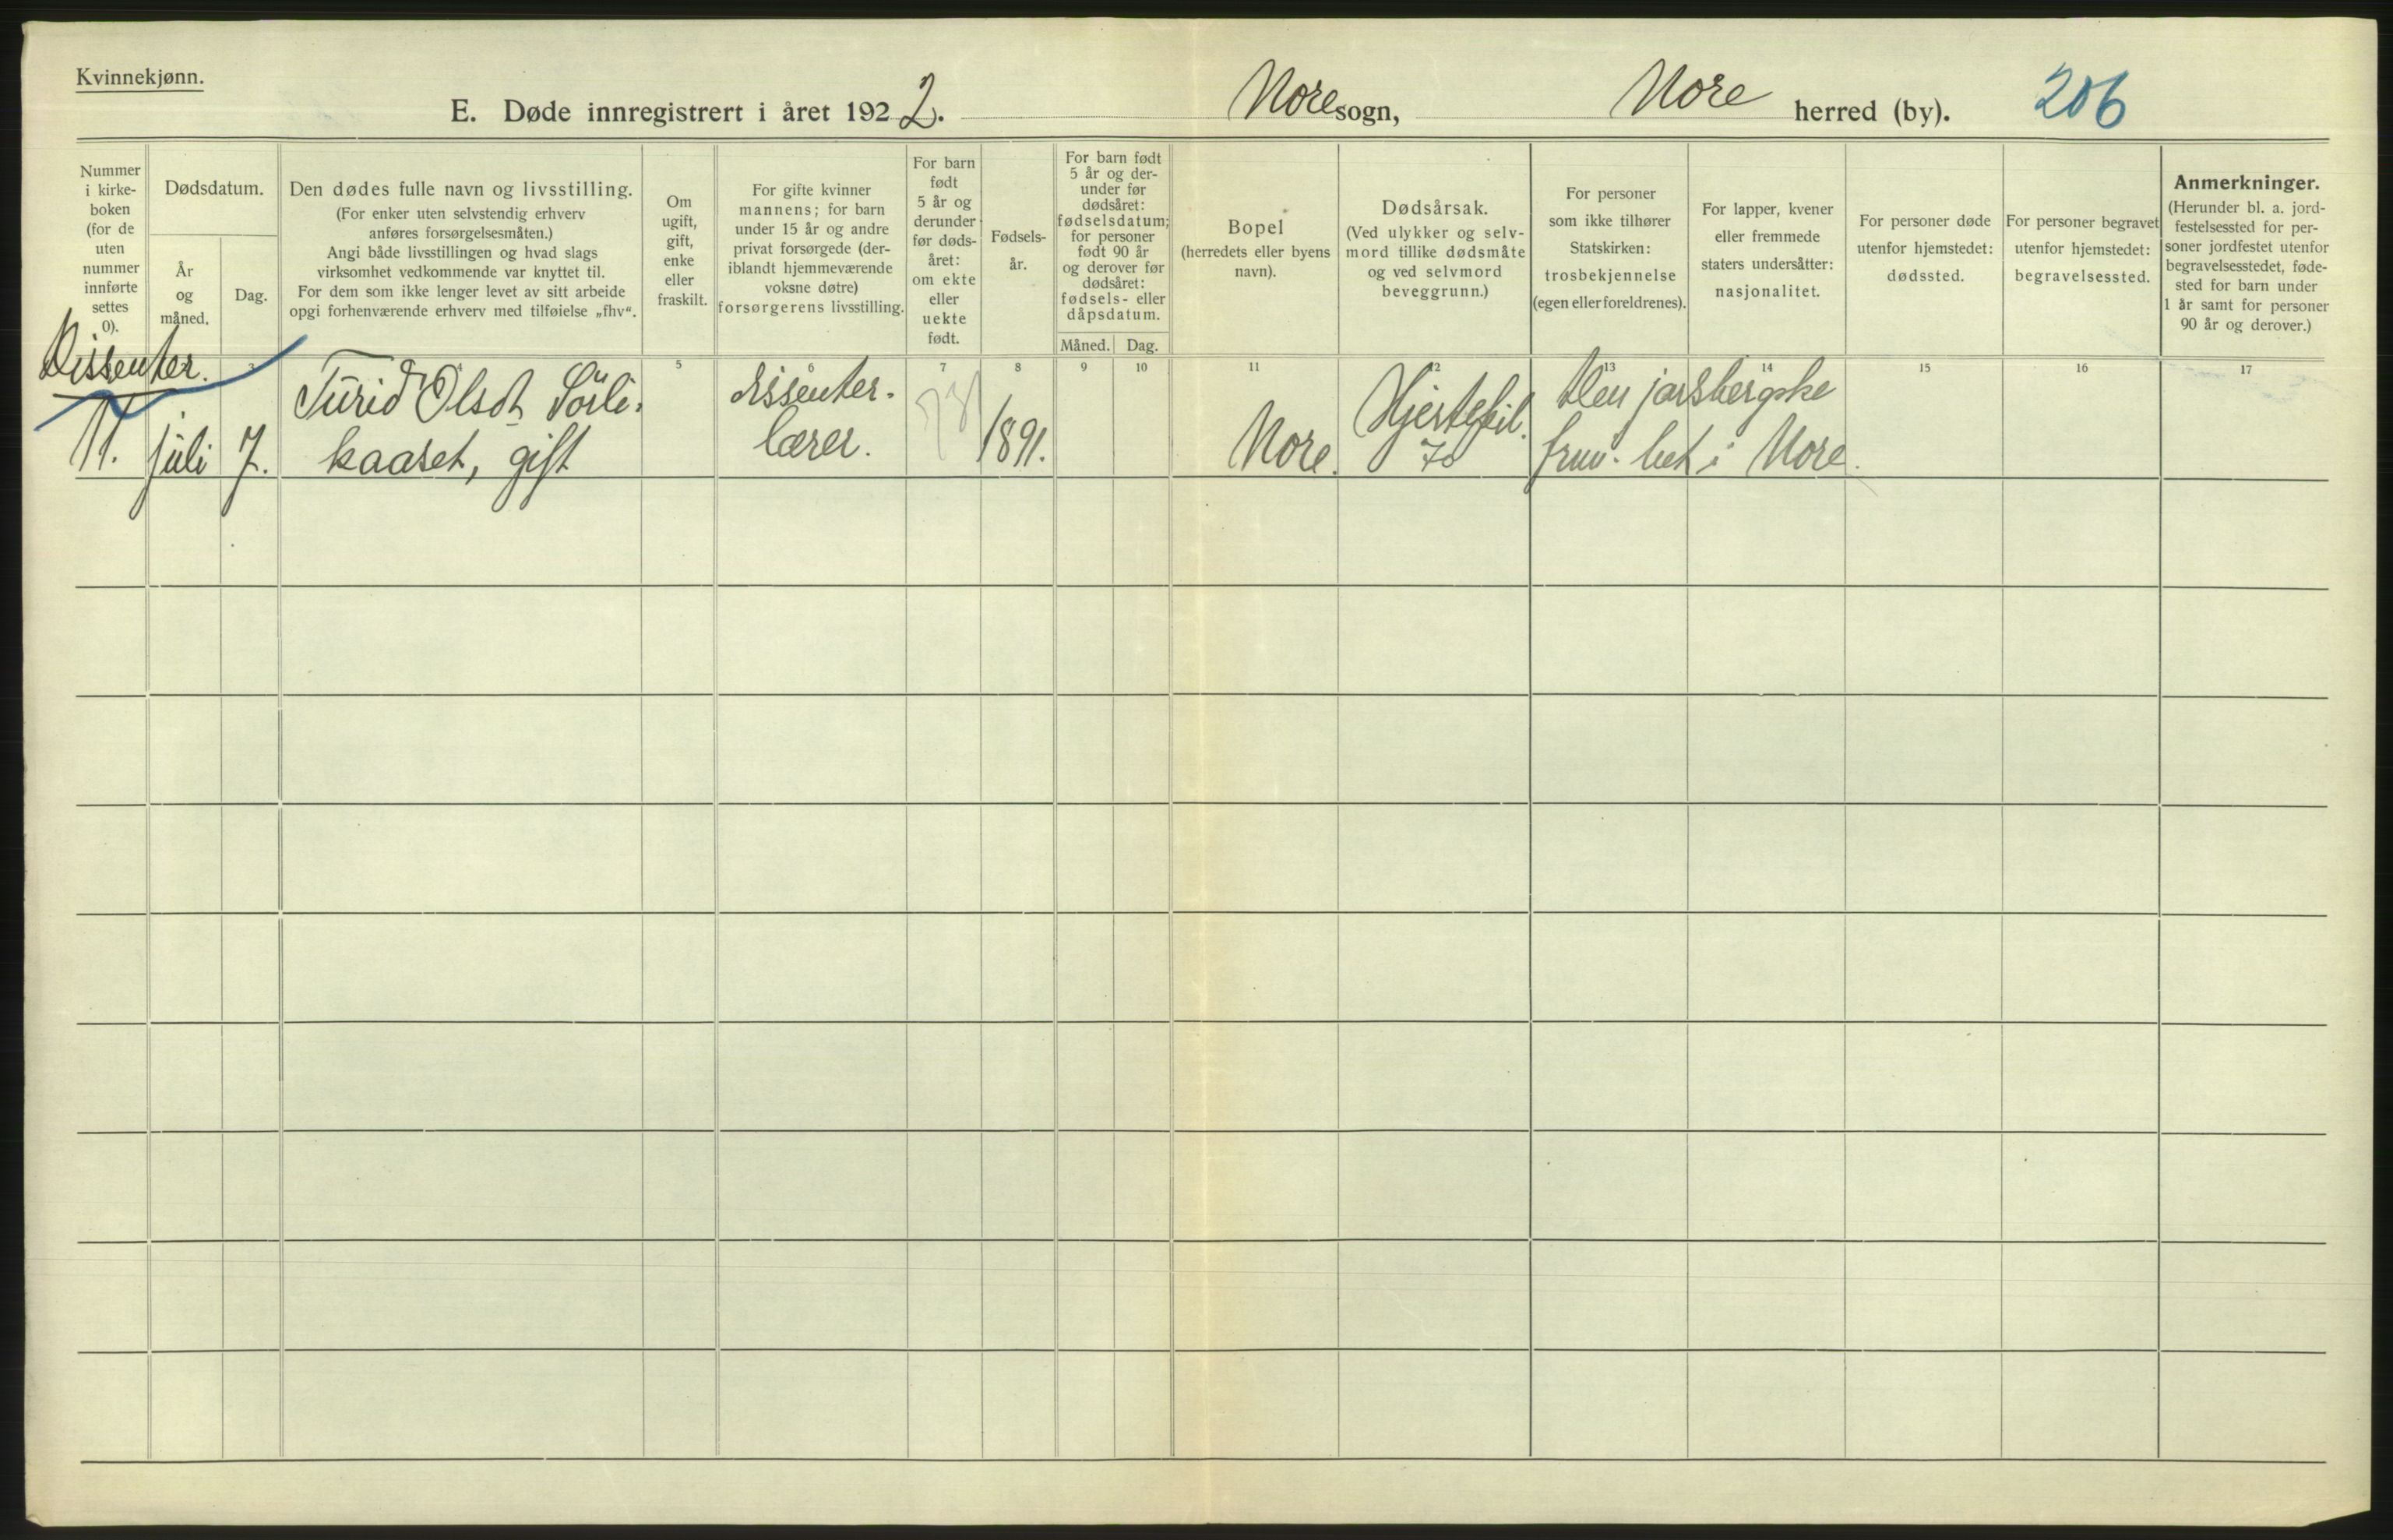 Kvinnekjønn.
E. Døde innregistrert i året 1922. Nore sogn, Nore herred (by). 206
Nummer i kirke-boken (for de uten nummer innførte settes 0).
Dødsdatum.
År og måned.
Dag.
Den dødes fulle navn og livsstilling.
(For enker uten selvstendig erhverv
anføres forsørgelsesmåten.)
Angi både livsstillingen og hvad slags
virksomhet vedkommende var knyttet til.
For dem som ikke lenger levet av sitt arbeide
opgi forhenværende erhverv med tilføielse „fhv“.
Om
ugift,
gift,
enke
eller
fraskilt.
For gifte kvinner
mannens; for barn
under 15 år og andre
privat forsørgede (der-
iblandt hjemmeværende
voksne døtre)
forsørgerens livsstilling.
For barn
født
5 år og
derunder
før døds-
året:
om ekte
eller
uekte
født.
Fødsels-
år.
For barn født
5 år og der-
under før
dødsåret:
fødselsdatum;
for personer
født 90 år
og derover før
dødsåret:
fødsels- eller
dåpsdatum.
Måned. Dag.
Bopel
(herredets eller byens
navn).
Dødsårsak.
(Ved ulykker og selv-
mord tillike dødsmåte
og ved selvmord
beveggrunn.)
For personer
som ikke tilhører
Statskirken:
trosbekjennelse
(egen eller foreldrenes).
For lapper, kvener
eller fremmede
staters undersåtter:
nasjonalitet.
For personer døde
utenfor hjemstedet:
dødssted.
For personer begravet
utenfor hjemstedet:
begravelsessted.
Anmerkninger.
(Herunder bl. a. jord-
festelsessted for per-
soner jordfestet utenfor
begravelsesstedet, føde-
sted for barn under
1 år samt for personer
90 år og derover.)
3 4 5 6 7 8 9 10 11 12 13 14 15 16 17
Dissenter.
11. juli 7.
Turid Olsdt Sörli-
kaaset, gift
dissenter-
lærer.
1891.
Nore.
Hjertefeil.
70
Den jarlsbergske
frim. het i Nore.